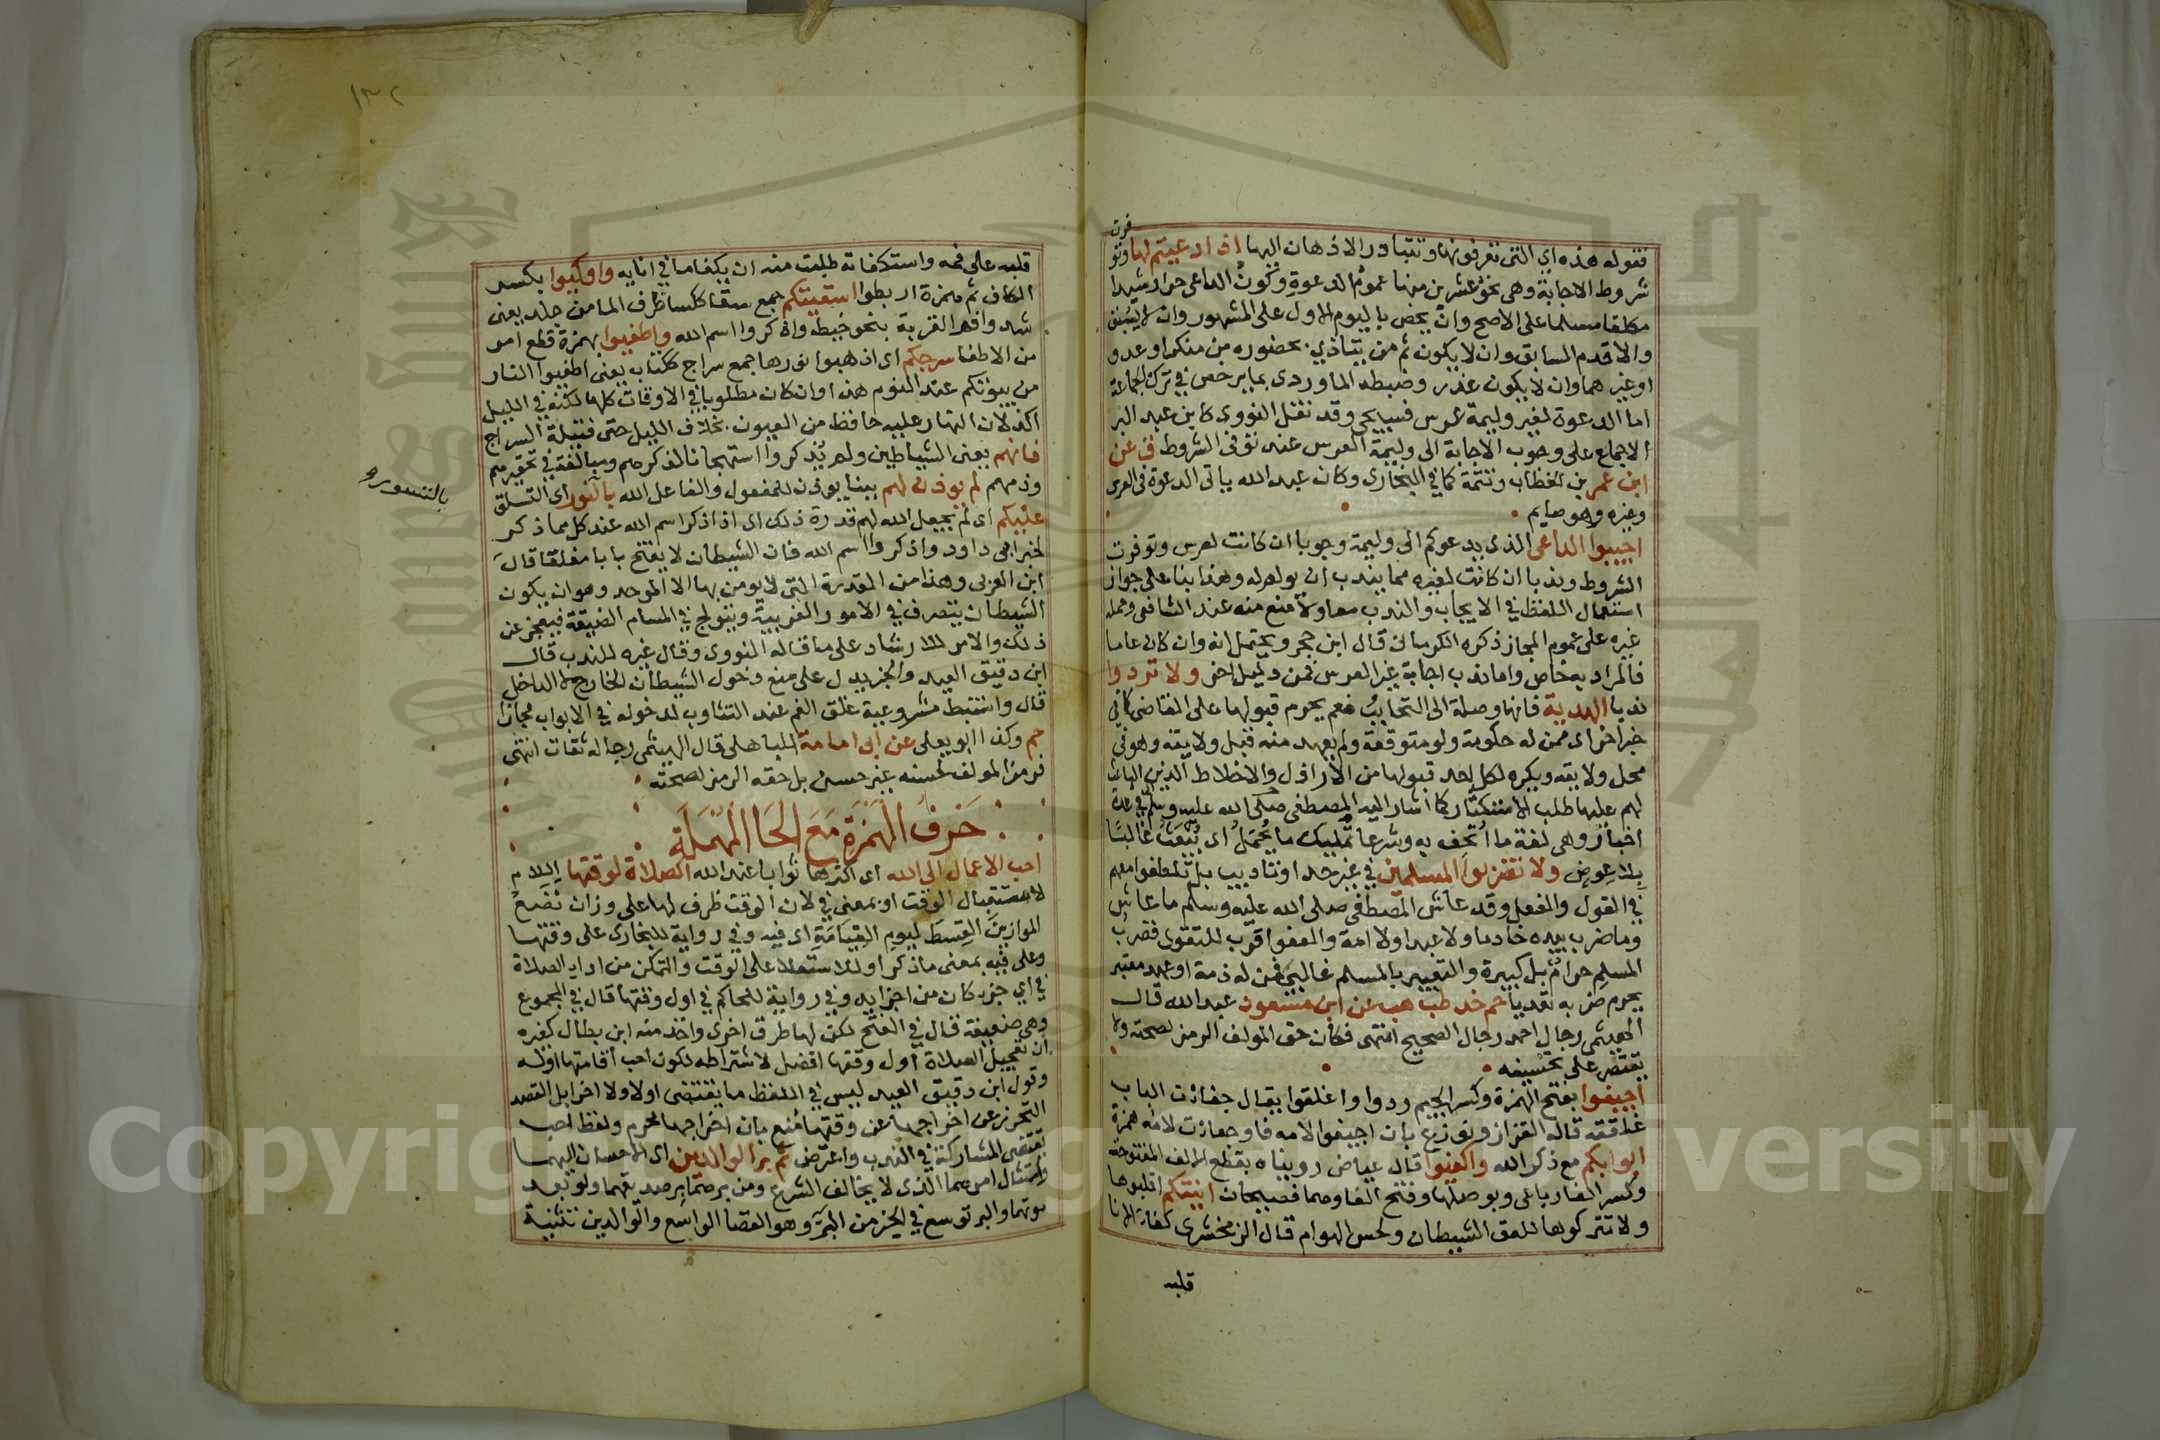 فقوله هذه اي التي تعرفونها وتتبادر الاذهان اليها اذا دعيتم لها وتو
فرت
شروط الاجابة وهي نحو عشرين منها عموم الدعوة وكون الداعي حرا رشيدا
مكلفا مسلما على الاصح وان يخص باليوم الاول على المشهور وان لا يسبق
والا قدم السابق وان لا يكون ثم من يتاذي بحضوره من منكر او عدو
او غيرهما وان لا يكون عذر وضبطه الماوردي بما يرخص في ترك الجماعة
اما الدعوة لغير وليمة عرس فسيجي وقد نقل النووي كابن عبد البر
الاجماع على وجوب الاجابة الى وليمة العرس عند توفر الشروط ق عن
ابن عمر بن الخطاب وتتمة كما في البخاري وكان عبد الله ياتي الدعوة في العرس
وغيره وهو صايم
اجيبوا الداعي الذي يدعوكم الى وليمة وجوبا ان كانت لعرس وتوفرت
الشروط وندبا ان كانت لغيره مما يندب ان يولم له وهذا بنا على جواز
استعمال اللفظ في الايجاب والندب معا ولا منع منه عند الشافعي وحمله
غيره على عموم المجاز ذكره الكرماني قال ابن حجر ويحتمل انه وان كان عاما
فالمراد به خاص واما ندب اجابة غير العرس فمن دليل اخر ولا تردوا
ندبا الهدية فانها وصلة الى التحابب نعم يحرم قبولها على القاضي كما في
خبر اخر اي ممن له حكومة ولو متوقعة ولم يعهد منه قبل ولايته وهو في
محل ولايته ويكره لكل احد قبولها من الاراذل والاخلاط الذين الباعث
لهم عليها طلب الاستكثار كما اشار اليه المصطفى صلى الله عليه وسلم في عدة
اخبار وهي لغة ما اتحف به وشرعا تمليك ما يحمل اي يبعث غالبا
بلا عوض ولا تضربوا المسلمين في غير حد او تاديب بل تلطفوا معهم
في القول والفعل وقد عاش المصطفى صلى الله عليه وسلم ما عاش
وما ضرب بيده خادما ولا عبدا ولا امة والعفو اقرب للتقوى فضرب
المسلم حرام بل كبيرة والتعبير بالمسلم غالبي فمن له ذمة او عهد معتبر
يحرم ضربه تعديا حم خد طب هب عن ابن مسعود عبد الله قال
الهيثمي رجال احمد رجال الصحيح انتهى فكان حق المولف الرمز لصحته ولا
يقتصر على تحسينه
اجيفوا بفتح الهمزة وكسر الجيم ردوا واغلقوا يقال جفات الباب
غلقته قاله القزاز ونوزع بان اجيفوا لامه فا وجفات لامه همزة
ابوابكم مع ذكر الله واكفئوا قال عياض رويناه بقطع الالف المفتوحة
وكسر الفا رباعي وبوصلها وفتح الفا وهما فصيحان انيتكم اقلبوها
ولا تتركوها للعق الشيطان ولحس الهوام قال الزمخشري كفات الانا
قلبه
١٣٢
قلبته على فمه واستكفاته طلبت منه ان يكفا ما في انايه واوكئوا بكسر
الكاف ثم همزة اربطوا اسقيتكم جمع سقا ككسا ظرف الما من جلد يعني
شدوا فم القربة بنحو خيط واذكروا اسم الله واطفيوا بهمزة قطع امر
من الاطفا سرجكم اي اذهبوا نورها جمع سراج ككتاب يعني اطفيوا النار
من بيوتكم عند النوم هذا وان كان مطلوبا في الاوقات كلها لكنه في الليل
اكد لان النهار عليه حافظ من العيون بخلاف الليل حتى فتيلة السراج
فانهم يعني الشياطين ولم يذكروا استهجانا لذكرهم ومبالغة في تحقيرهم
وذمهم لم يوذن لهم ببنا يوذن للمفعول والفاعل الله بالتسور اي التسلق
بالتسور
عليكم اي لم يجعل الله لهم قدرة ذلك اي اذا ذكر اسم الله عند كل مما ذكر
لخبر ابي داود واذكروا اسم الله فان الشيطان لا يفتح بابا مغلقا قال
ابن العربي وهذا من القدرة التي لا يومن بها الا الموحد وهو ان يكون
الشيطان يتصرف في الامور الغريبة ويتولج في المسام الضيقة فيعجز عن
ذلك والامر للارشاد على ما قاله النووي وقال غيره للندب قال
ابن دقيق العيد والخبر يدل على منع دخول الشيطان الخارج لا الداخل
قال واستنبط مشروعية غلق الفم عند التثاوب لدخوله في الابواب مجازا
حم وكذا ابو يعلى عن ابي امامة الباهلي قال الهيثمي رجاله ثقات انتهى
فرمز المولف لحسنه غير حسن بل حقه الرمز لصحته
حرف الهمزة مع الحا المهملة
احب الاعمال الى الله اي اكثرها ثوابا عند الله الصلاة لوقتها اللام
لاستقبال الوقت او بمعنى في لان الوقت ظرف لها على وزان ونضع
الموازين القسط ليوم القيامة اي فيه وفي رواية للبخاري على وقتها
وعلى فيه بمعنى ما ذكر او للاستعلا على الوقت والتمكن من اداء الصلاة
في اي جزء كان من اجزايه وفي رواية للحاكم في اول وقتها قال في المجموع
وهي ضعيفة قال في الفتح لكن لها طرق اخرى واخذ منه ابن بطال كغيره
ان تعجيل الصلاة اول وقتها افضل لاشتراطه لكون احب اقامتها اوله
وقول ابن دقيق العيد ليس في اللفظ ما يقتضي اولا ولا اخرا بل القصد
التحرز عن اخراجها عن وقتها منع بان اخراجها محرم ولفظ احب
يقتضي المشاركة في الندب واعترض ثم بر الوالدين اي الاحسان اليهما
وامتثال امرهما الذي لا يخالف الشرع ومن برهما بر صديقهما ولو بعد
موتهما والبر توسع في الخير من البر وهو الفضا الواسع والوالدين تثنية
Copyright © King Saud University